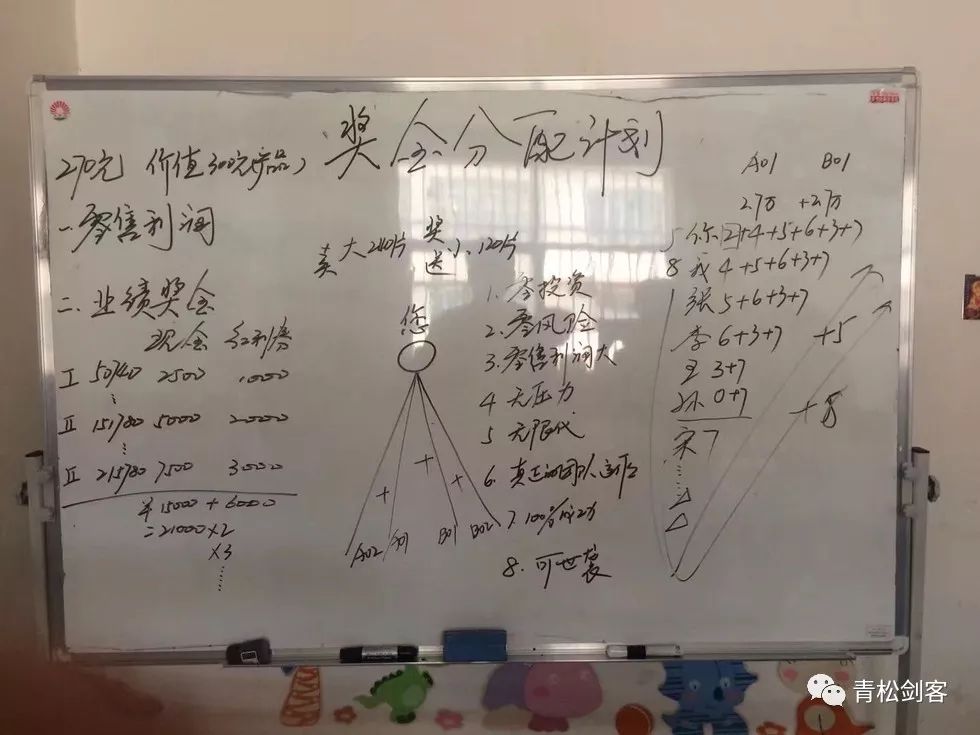 奖金分配计划
270元 价值300元产品)
一.零售利润
二.业绩奖金
现金 红利券
I 50/40 2500 1000
II 151/80 5000 20000
II 215/80 7500 30000
¥15000 + 6000
=21000×2
×3
卖大240片奖
送小120片
您
+ + +
A02 A01 B01 B02
1. 零投资
2. 零风险
3. 零售利润大
4 无压力
5 无限代
6. 真正的团队运作
7. 100%成功
8. 可世袭
A01 B01
2万 +2万
5 你 2+4+5+6+3+7
8 我 4+5+6+3+7
张 5+6+3+7
李 6+3+7 +5
王 3+7
孙 0+7 +8
宋 7
青松剑客